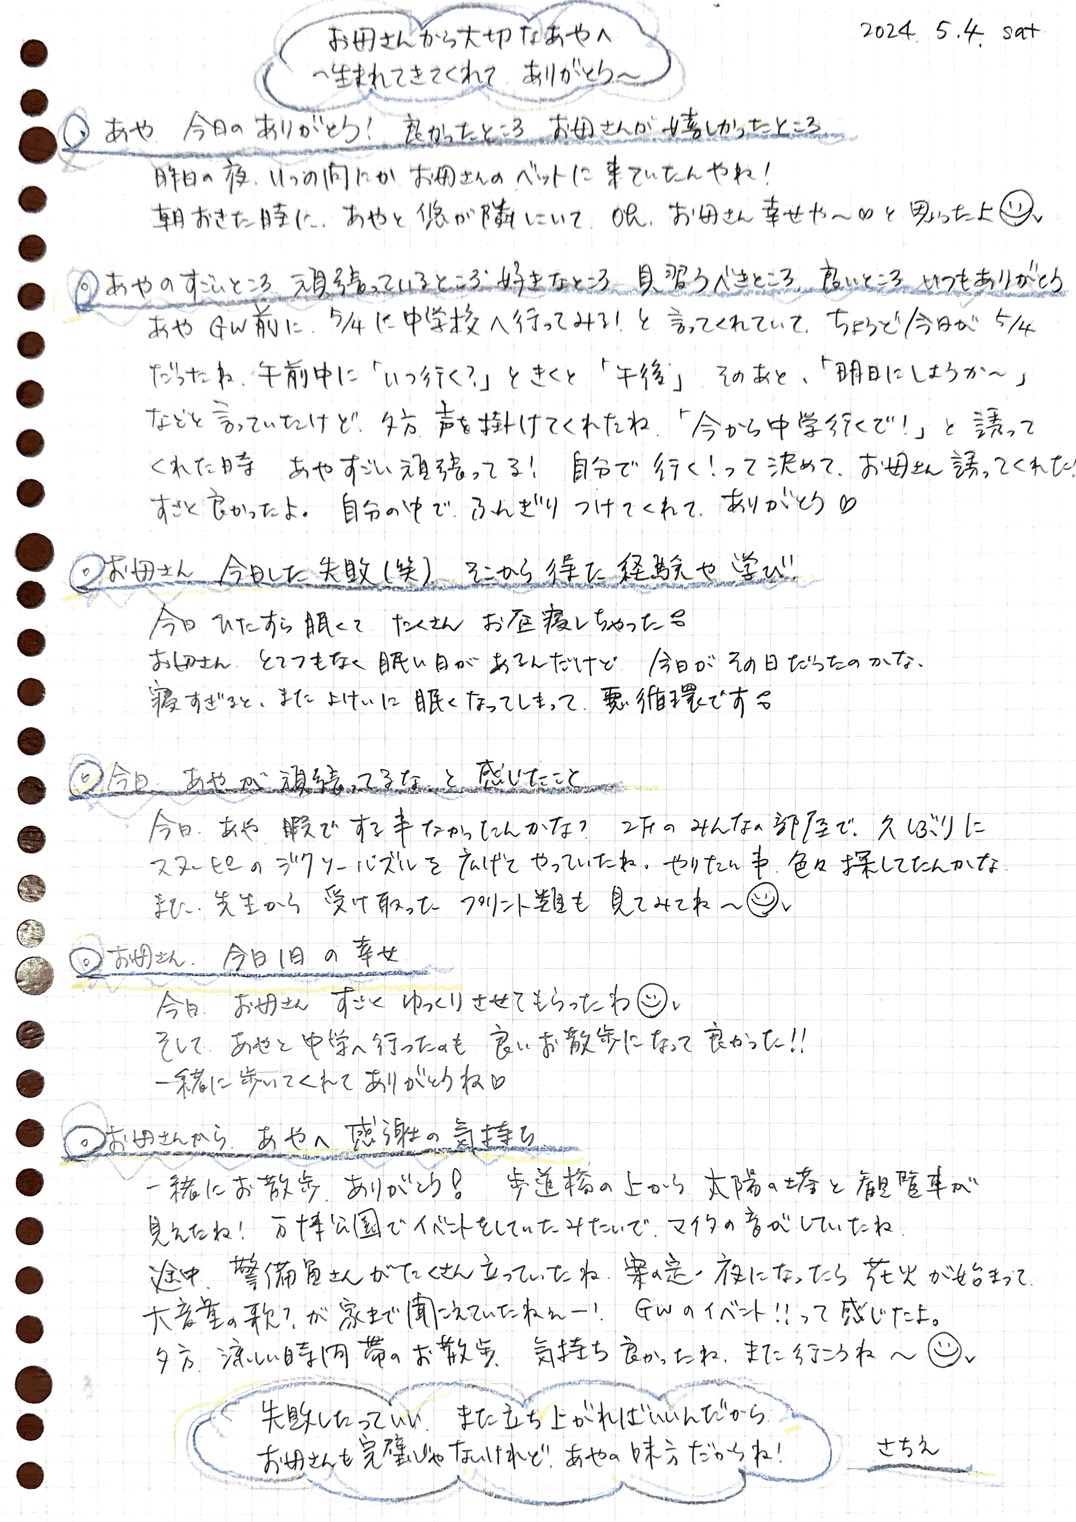 2024. 5. 4. sat
お母さんから大切なあやへ
〜生まれてきてくれて ありがとう〜
あや 今日のありがとう! 良かったところ お母さんが嬉しかったところ
昨日の夜、いつの間にか お母さんのベットに来ていたんやね!
朝おきた時に、あやと悠が隣にいて、 お母さん幸せや〜♡と思ったよ☺
あやのすごいところ 頑張っているところ 好きなところ 見習うべきところ 良いところ いつもありがとう
あや GW前に、5/4に中学校へ行ってみる!と言ってくれていて、ちょうど今日が5/4
だったね、午前中に「いつ行く?」ときくと「午後」 そのあと、「明日にしようか〜」
などと言っていたけど、夕方、声を掛けてくれたね、「今から中学行くで!」と誘って
くれた時 あやすごい頑張ってる! 自分で行く!って決めて、お母さん誘ってくれた!
すごく良かったよ。 自分の中で、ふんぎりつけてくれて、ありがとう♡
お母さん 今日した失敗(笑) そこから得た経験や学び
今日ひたすら眠くて たくさん お昼寝しちゃった
お母さん とてつもなく眠い日があるんだけど 今日がその日だったのかな、
寝すぎると、またよけいに眠くなってしまって、悪循環です
今日、あやが頑張ってるな、と感じたこと
今日、あや 暇でする事なかったんかな? 2Fのみんなの部屋で、久しぶりに
スヌーピーのジグソーパズルを広げてやっていたね、やりたい事、色々探してたんかな
また、先生から受け取ったプリント類も見てみてね〜☺
お母さん、今日1日の幸せ
今日、お母さん すごくゆっくりさせてもらったわ☺
そして、あやと中学へ行ったのも 良いお散歩になって良かった!!
一緒に歩いてくれてありがとうね♡
お母さんから、あやへ 感謝の気持ち
一緒にお散歩、ありがとう! 歩道橋の上から 太陽の塔と観覧車が
見えたね! 万博公園でイベントをしていたみたいで、マイクの音がしていたね、
途中、警備員さんがたくさん立っていたね、案の定、夜になったら花火が始まって、
大音量の歌?が家まで聞こえていたねぇー! GWのイベント!!って感じたよ。
夕方、涼しい時間帯のお散歩、気持ち良かったね、また行こうね〜☺
失敗したっていい、また立ち上がればいいんだから
お母さんも完璧じゃないけれど、あやの味方だからね!
さちえ